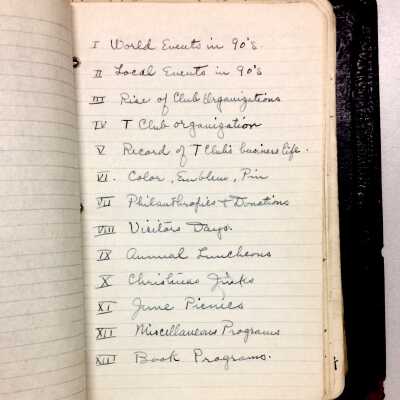 I World Events in 90's.
II Local Events in 90's
III Rise of Club Organizations
IV T Club organization
V Record of T Club's business life.
VI. Color, Emblem, Pin
VII Philanthrofies & Donations
VIII Visitors Days.
IX Annual Luncheons
X Christmas Jinks
XI June Picnics
XII Miscellaneous Programs
XIII Book Programs.